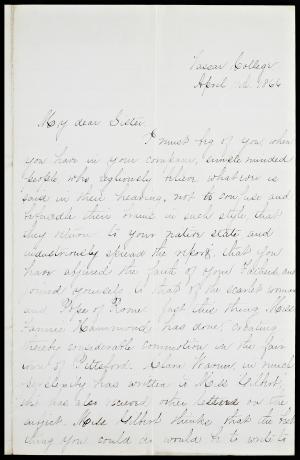 Vassar College
April 1866
My dear Sister
I must beg of you when
you have in your company, simple minded
people who religiously believe whatever is
said in their hearing, not to confuse and
their brains in such style, that
they return to your native state and
industriously spread the report, that you
have abjured the faith of your Fathers and
joined yourself to that of the scarlet woman
and Pope of Rome. Just this thing Miss
Fannie Hammond has done, creating
thereby considerable commotion in the fair
town of Pittsford. Clara Warner, in much
has written to Miss Gilbert,
she has also received other letters on the
subject. Miss Gilbert thinks that the best
thing you could do would be to write to